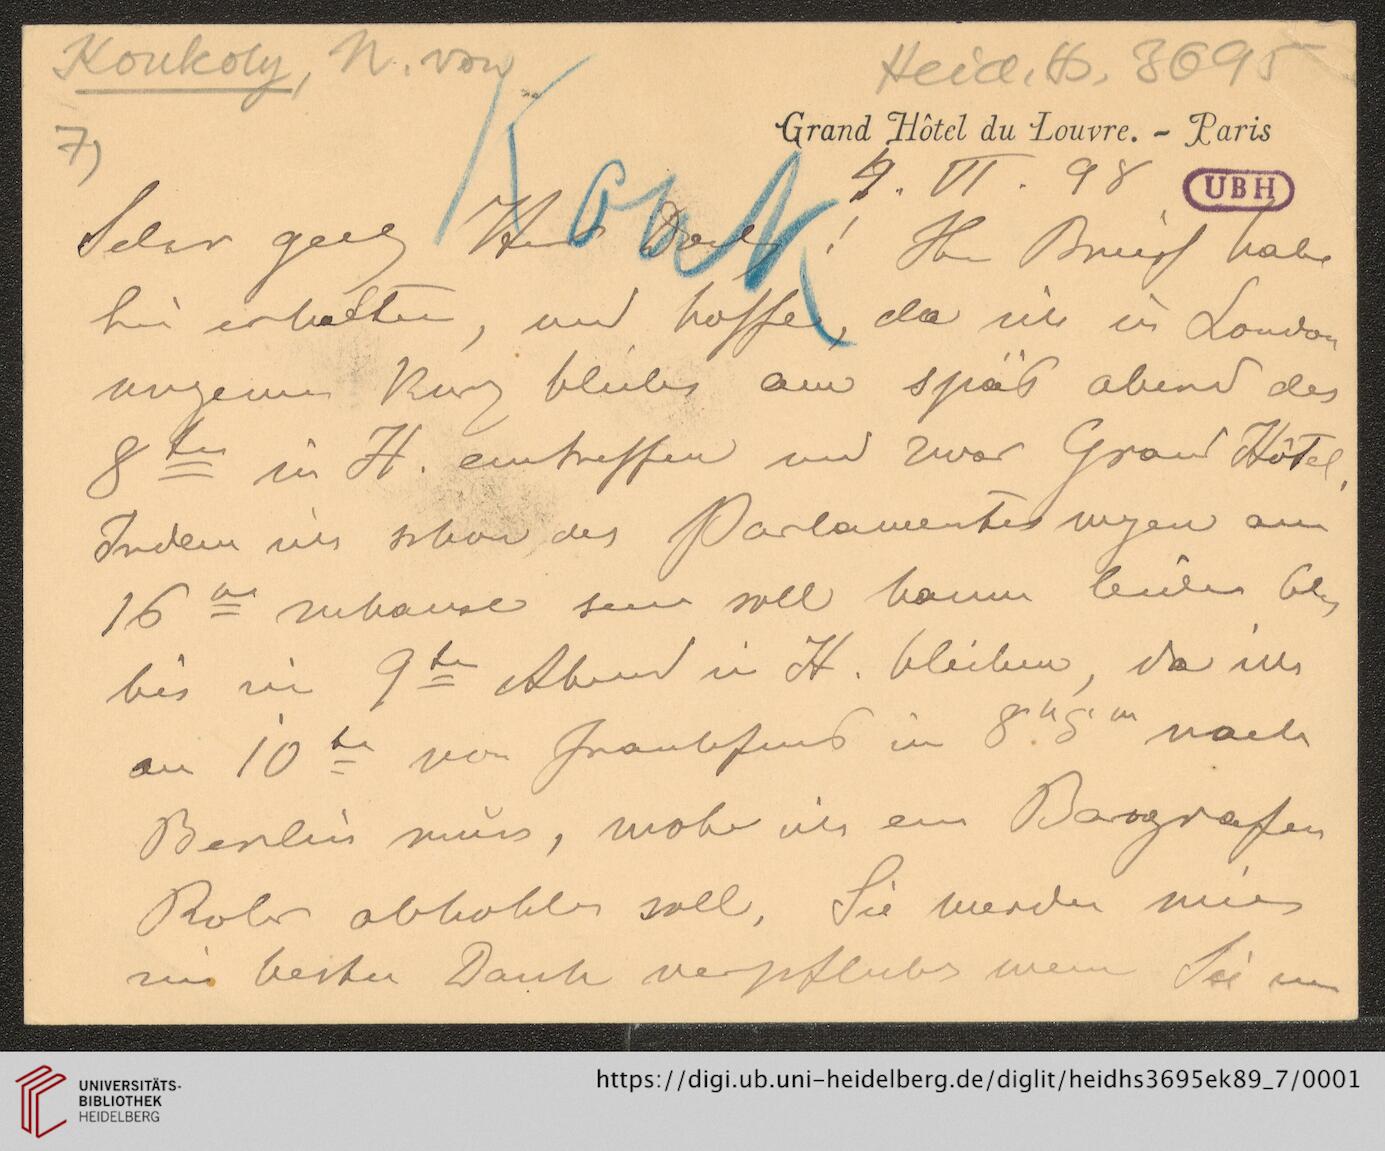 Konkoly, N. von
Heid. Hs. 3695
7)
Konk
Grand Hôtel du Louvre. - Paris
9. VI. 98
UBH
Sehr geehrter Herr ! Ihr Brief habe
hier erhalten, und hoffe, da ich in London
ungemein kurz bleibe am spät abend des
8ten in H. eintreffen und zwar Grand Hôtel,
Indem ich schon des Parlamentes wegen am
16ten zuhause sein soll kann leider blos
bis 9ten Abend in H. bleiben, da ich
am 10ten von Frankfurt 8h 5m nach
Berlin muss, wo ich ein Barografen
Rohr abhohlen soll, Sie werden mich
besten Dank verpflichten wenn Sie
UNIVERSITÄTS-
BIBLIOTHEK
HEIDELBERG
https://digi.ub.uni-heidelberg.de/diglit/heidhs3695ek89_7/0001